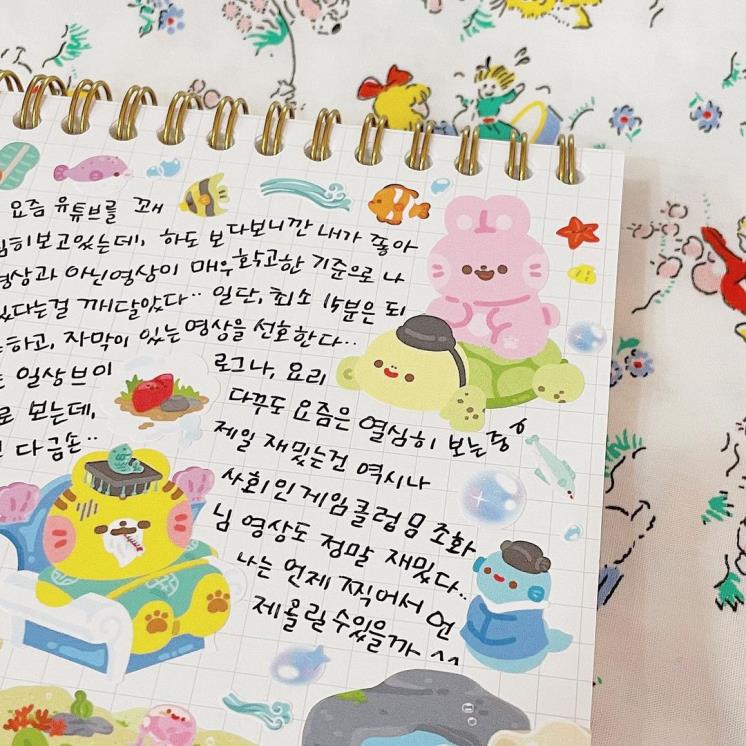 요즘 유튜브를 꽤
심히보고있는데, 하도 보다보니깐 내가 좋아
영상과 아닌영상이 매우확고한 기준으로 나
있다는걸 깨달았다.. 일단, 최소 15분은 되
하고, 자막이 있는영상을 선호한다..
일상브이 로그나, 요리
로 보는데, 다꾸도 요즘은 열심히 보는중
다금손.. 제일 재밌는건 역시나
사회인게임클럽 몀 조화
님 영상도 정말 재밌다..
나는 언제 찍어서 언
제올릴수있을까 ^^